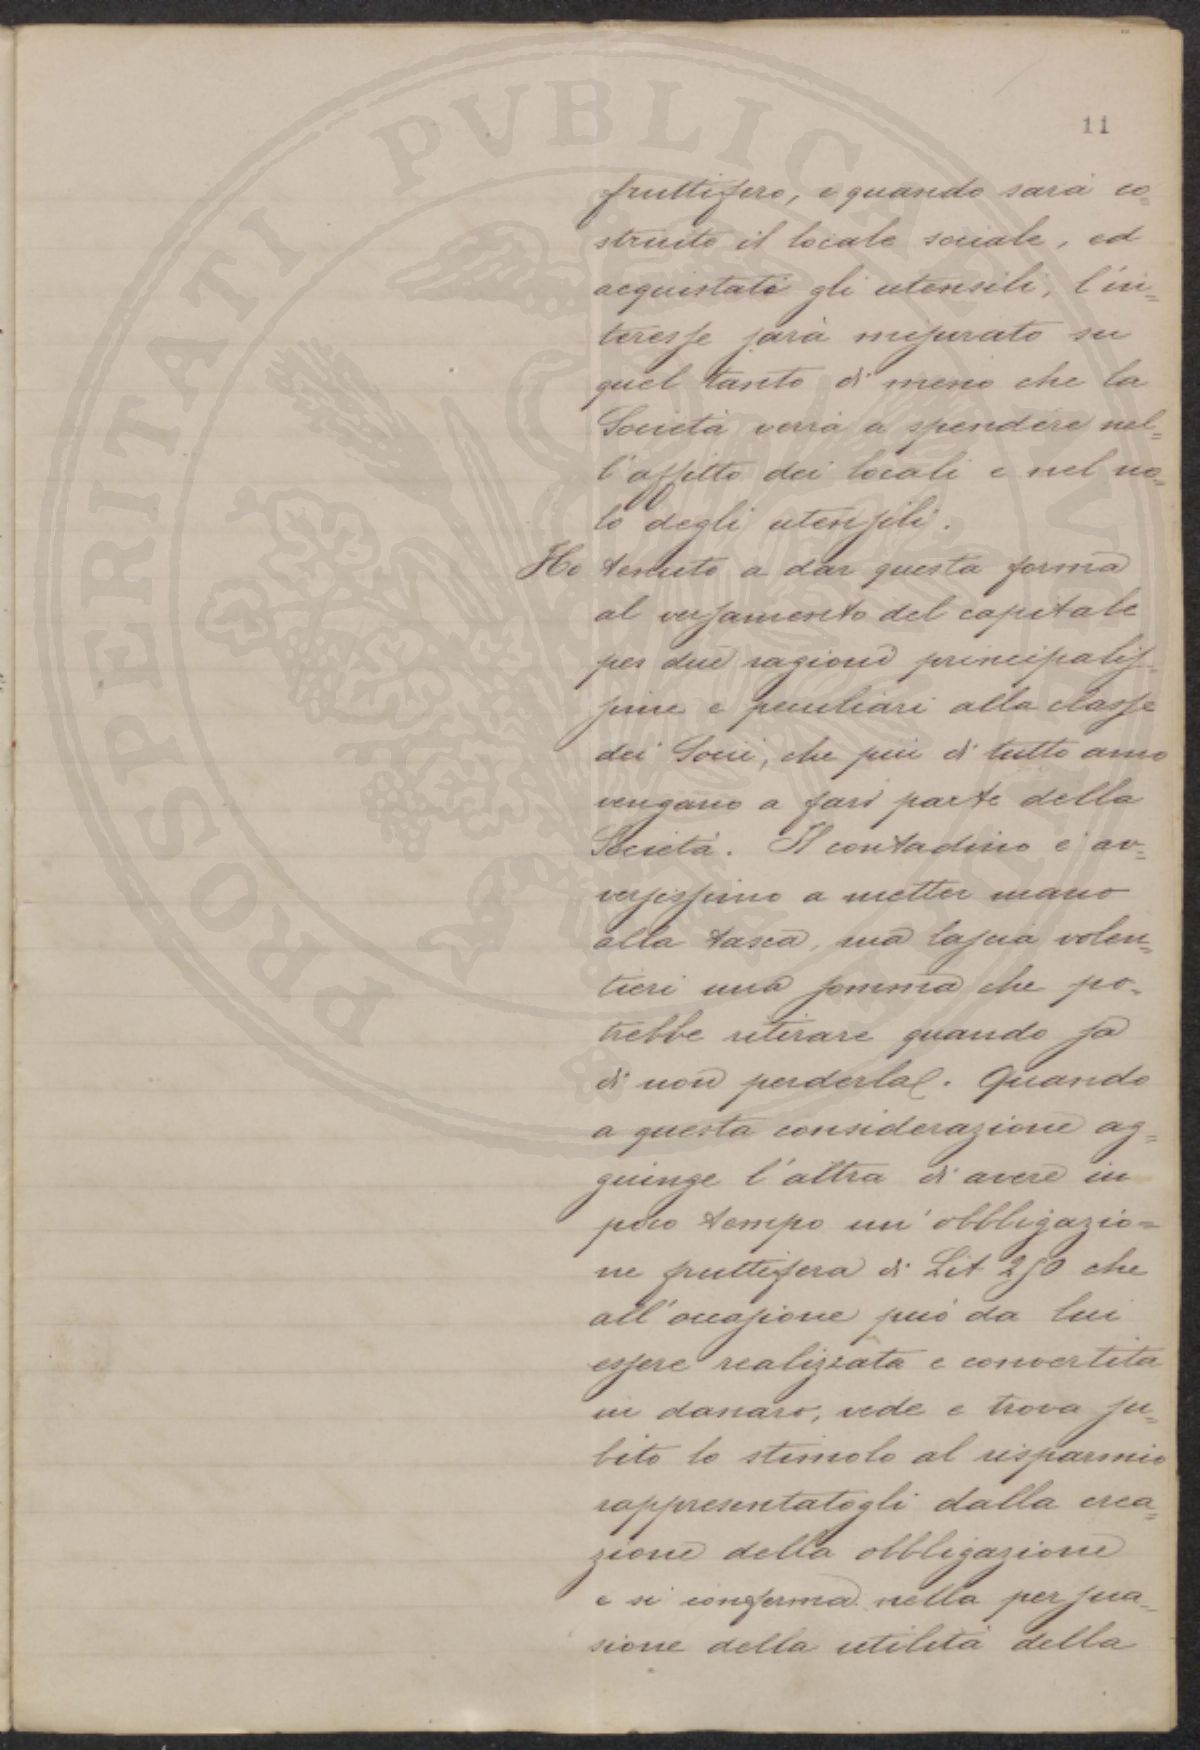 11
fruttifero, e quando sarà co-
struito il locale sociale, ed
acquistati gli utensili, l'in=
teresse sarà misurato su
quel tanto di meno che la
Società verrà a spendere nel=
l'affitto dei locali e nel no=
lo degli utensili.
Ho tenuto a dar questa forma
al versamento del capitale
per due ragioni principalis-
sime e peculiari alla classe
dei Socii, che più di tutto amo
vengano a fari parte della
Società. Il contadino è av=
versissimo a metter mano
alla tasca, ma lascia volen=
tieri una somma che po-
trebbe ritirare quando sa
di non perderla. Quando
a questa considerazione ag=
giunge l'altra di avere in
poco tempo un'obbligazio=
ne fruttifera di Lit 250 che
all'occasione può da lui
essere realizzata e convertita
in danaro, vede e trova su=
bito lo stimolo al risparmio
rappresentatogli dalla crea=
zione della obbligazione
e si conferma nella persua-
sione della utilità della
PUBLICAE UTILITATI PROSPERITATI